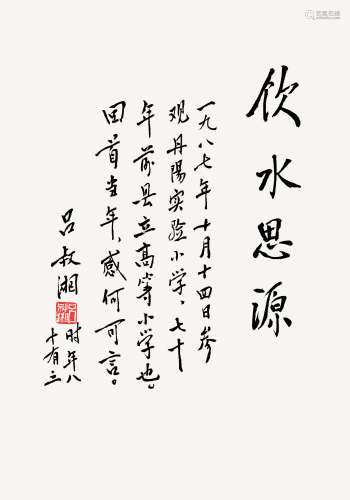 饮水思源
一九八七年十月十四日参
观丹陽实验小学，七十
年前县立高等小学也。
回首当年，感何可言。
吕叔湘
时年八
十有三